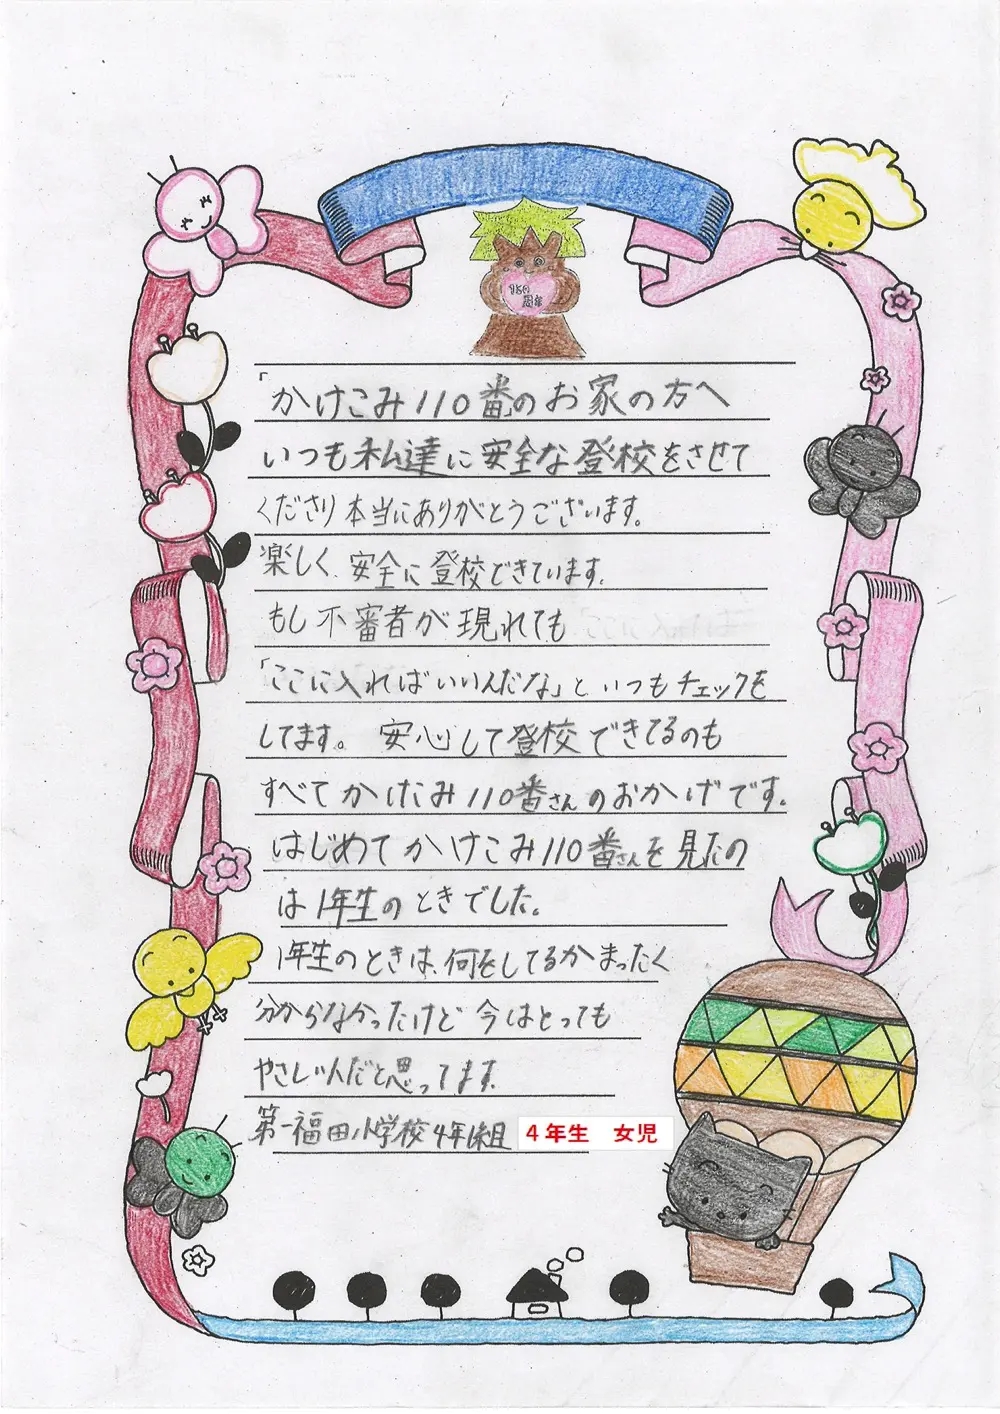 150
周年
「かけこみ110番」のお家の方へ
いつも私達に安全な登校をさせて
くださり本当にありがとうございます。
楽しく、安全に登校できています。
もし不審者が現れても
「ここに入ればいいんだな」といつもチェックを
してます。安心して登校できてるのも
すべてかけこみ110番さんのおかげです。
はじめてかけこみ110番さんを見たの
は1年生のときでした。
1年生のときは、何をしてるかまったく
分からなかったけど今はとっても
やさしい人だと思ってます。
第一福田小学校4年1組 4年生 女児